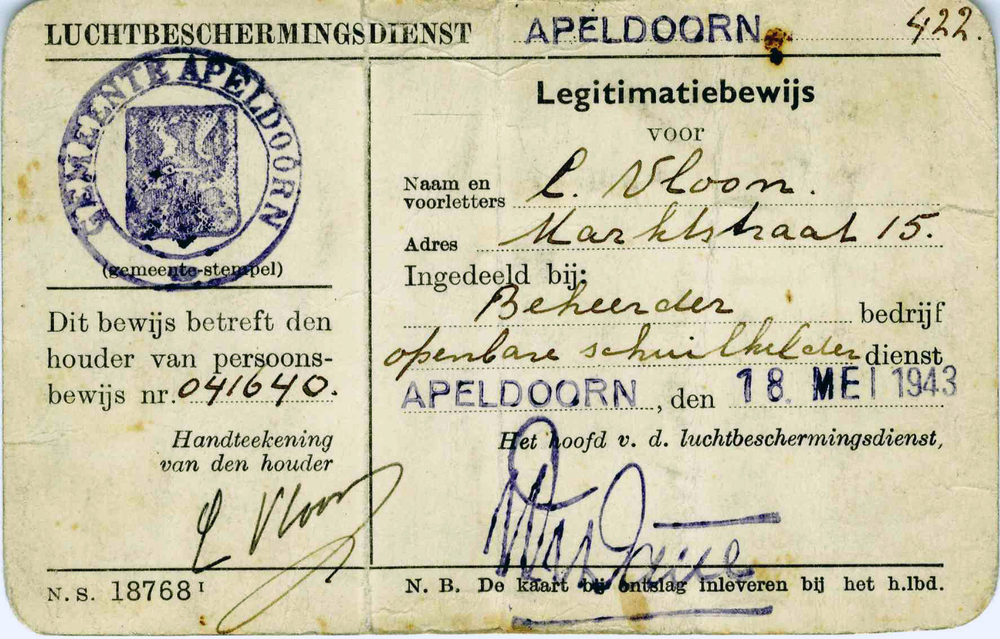 LUCHTBESCHERMINGSDIENST APELDOORN. 422.
GEMEENTE APELDOORN
(gemeente-stempel)
Dit bewijs betreft den
houder van persoons-
bewijs nr. 041640.
Handteekening
van den houder
C Vloon
N. S. 18768 I
Legitimatiebewijs
voor
Naam en
voorletters C. Vloon.
Adres Marktstraat 15.
Ingedeeld bij:
Beheerder bedrijf
openbare schuilkelder dienst
APELDOORN, den 18. MEI 1943
Het hoofd v. d. luchtbeschermingsdienst,
N. B. De kaart bij ontslag inleveren bij het h.lbd.